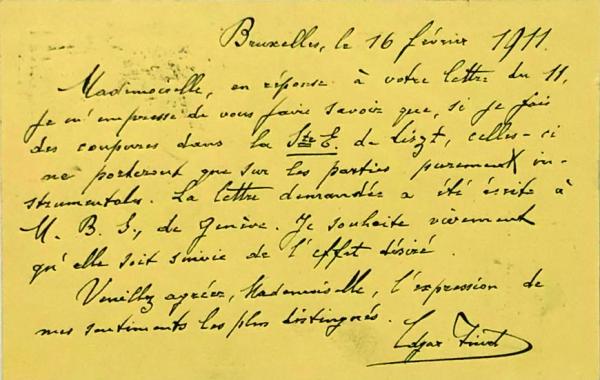 Bruxelles, le 16 février 1911.
Mademoiselle, en réponse à votre lettre du 11,
je m'empresse de vous faire savoir que, si je fais
des coupures dans la Ste E. de Liszt, celles-ci
ne porteront que sur les parties purement in-
strumentales. La lettre demandée a été écrite à
M. B. S., de Genève. Je souhaite vivement
qu'elle soit suivie de l'effet désiré.
Veuillez agréer, Mademoiselle, l'expression de
mes sentiments les plus distingués.
Edgar Tinel